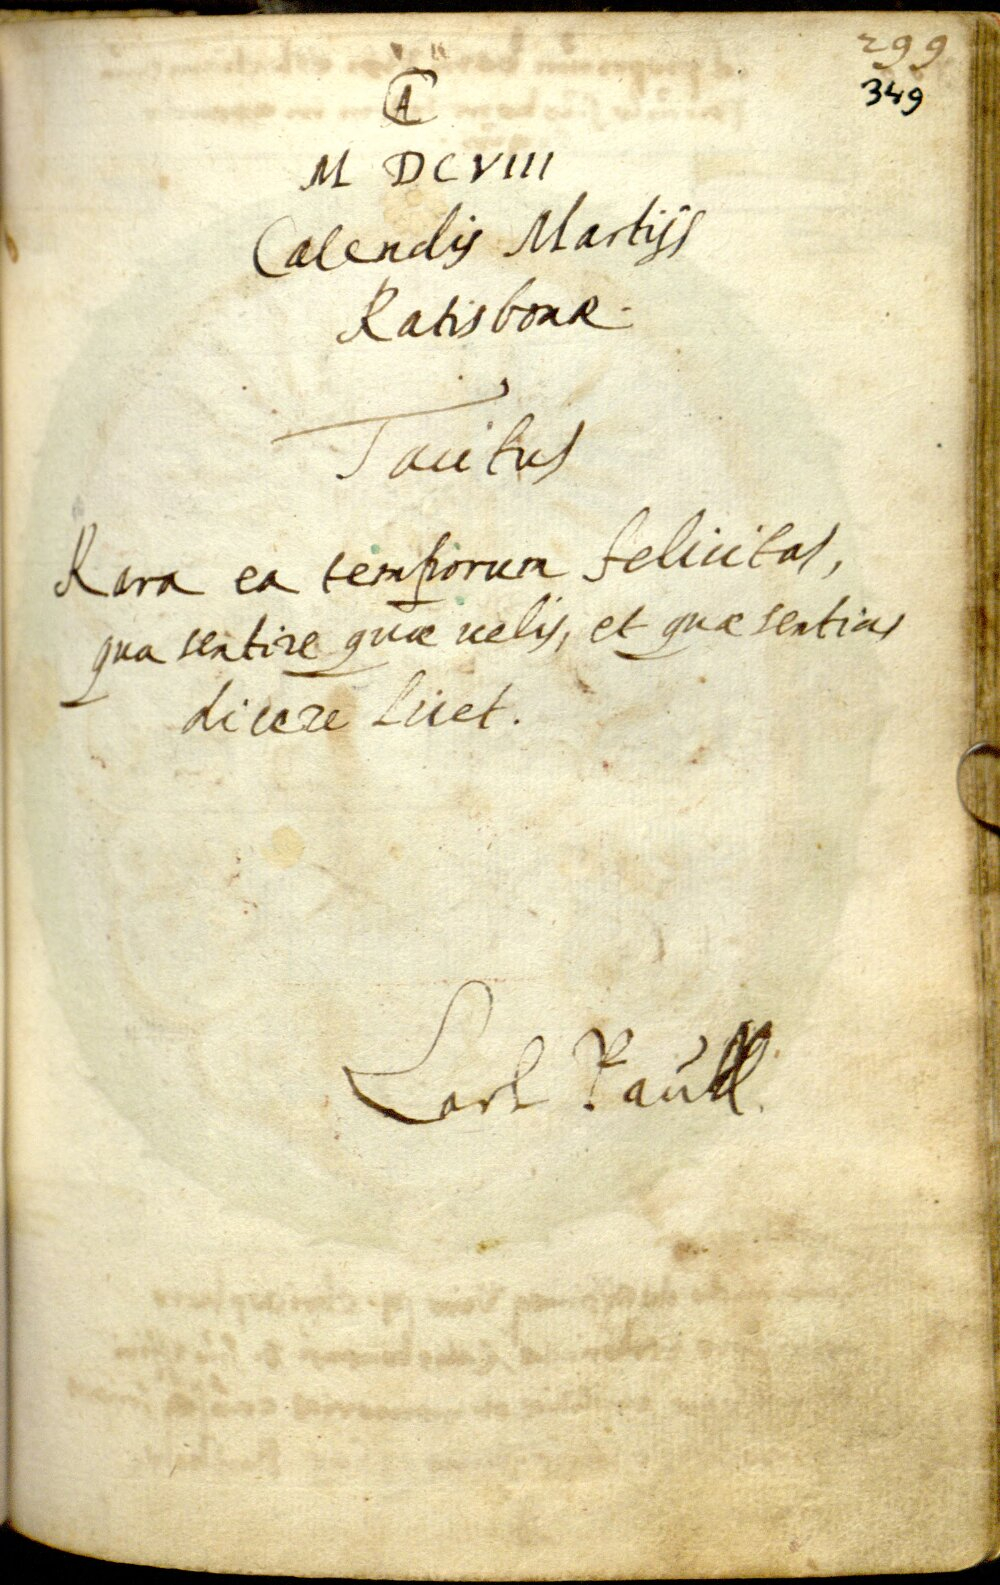 299
349
A
M DCVIII
Calendis Martijs
Ratisbonæ.
Tacitus
Rara ea temporum felicitas,
qua sentire quæ uelis, et quæ sentias
dicere licet.
Carl Paull.